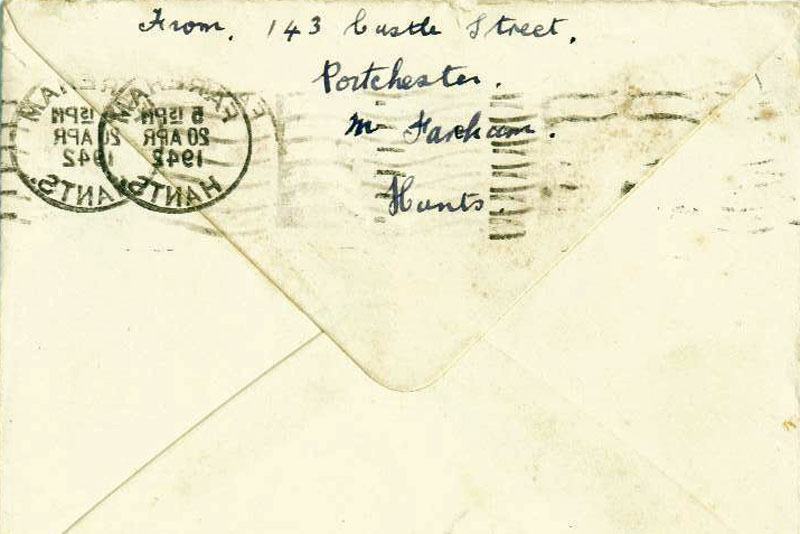 From, 143 Castle Street,
Portchester.
Nr Fareham.
Hants
FAREHAM
5 15 PM
20 APR
1942
HANTS.
FAREHAM
15 PM
20 APR
1942
HANTS.